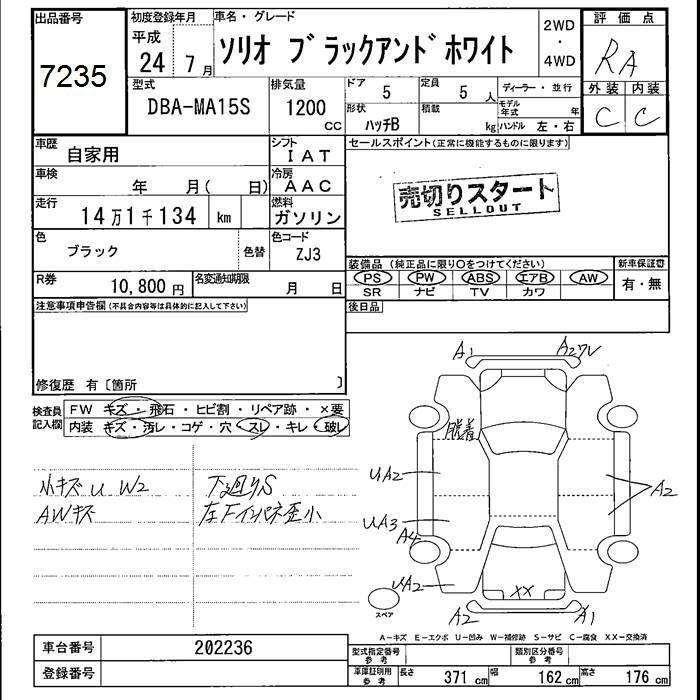 出品番号 初度登録年月 車名・グレード 2WD・4WD 評価点
7235 平成 24 7月 ソリオ ブラックアンドホワイト RA
型式 排気量 ドア 5 定員 5人 ディーラー・並行 外装 内装
DBA-MA15S 1200cc 形状 ハッチB 積載 kg モデル年式 年 ハンドル 左・右 C C
車歴 自家用 シフト IAT セールスポイント(正常に機能するものに限ります)
車検 年 月( 日) 冷房 AAC 売切りスタート
SELLOUT
走行 14万1千134 km 燃料 ガソリン
色 ブラック 色替 色コード ZJ3
装備品(純正品に限り○をつけてください) 新車保証書
PS PW ABS エアB AW 有・無
SR ナビ TV カワ
R券 10,800円 名変通知期限 月 日
後日品
注意事項申告欄(不具合内容等は具体的に記入して下さい)
修復歴 有〔箇所 〕
検査員記入欄 FW キズ・飛石・ヒビ割・リペア跡・×要
内装 キズ・汚レ・コゲ・穴・スレ・キレ・破レ
小キズ U W2 下廻りS
AWキズ 左Fインパネ歪小
A1 A2ワレ
脱着
UA2 A2
UA3
A4
UA2 XX
A2 A1
スペア
A-キズ E-エクボ U-凹み W-補修跡 S-サビ C-腐食 XX-交換済
車台番号 202236 型式指定番号 参考 類別区分番号 参考
登録番号 車庫証明用 参考 長さ 371cm 幅 162cm 高さ 176cm